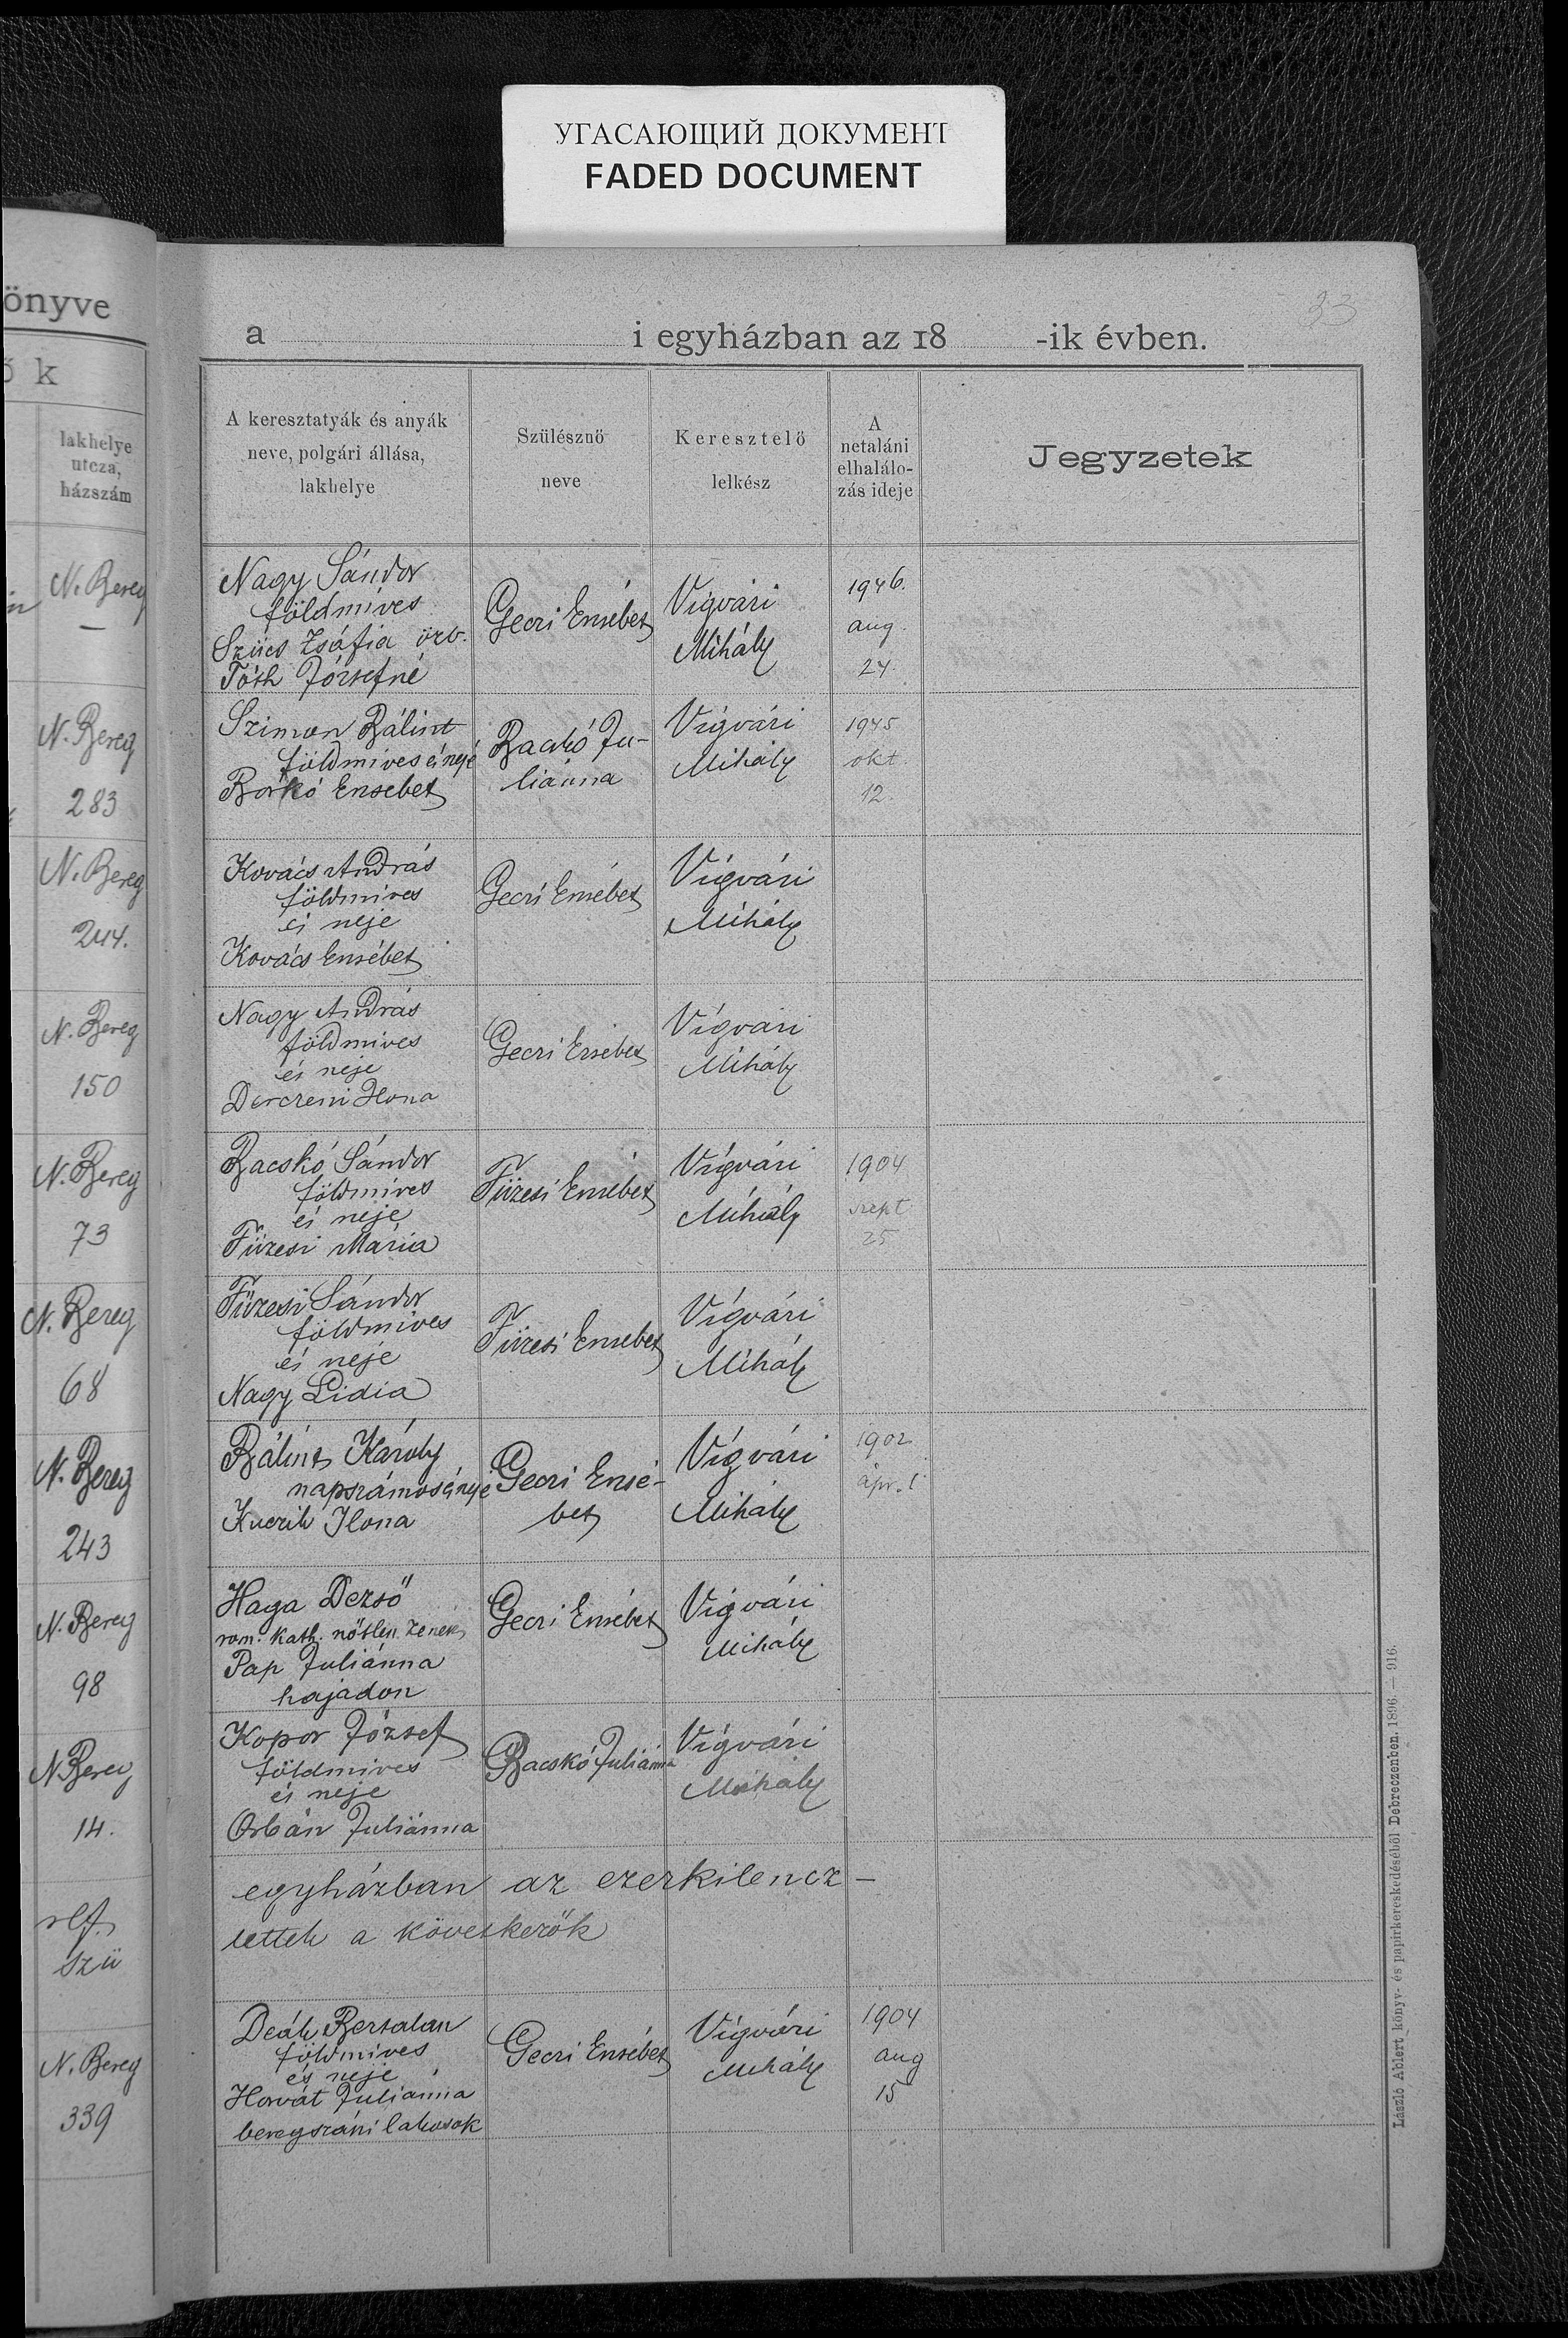 УГАСАЮЩИЙ ДОКУМЕНТ
FADED DOCUMENT
33
önyve
ők
lakhelye
utcza,
házszám
a i egyházban az 18 -ik évben.
A keresztatyák és anyák
neve, polgári állása,
lakhelye
Szülésznő
neve
Keresztelő
lelkész
A
netaláni
elhalálo-
zás ideje
Jegyzetek
N. Bereg
—
Nagy Sándor
földmíves
Szűcs Zsófia özv.
Tóth Józsefné
Geczi Ersébet
Vígvári
Mihály
1946.
aug.
24.
N. Bereg
283
Szimon Bálint
földmíves és neje
Borkó Ersebet
Backó Ju-
liánna
Vígvári
Mihály
1945
okt.
12.
N. Bereg
244.
Kovács András
földmíves
és neje
Kovács Ersébet
Geczi Ersébet
Vígvári
Mihály
N. Bereg
150
Nagy András
földmíves
és neje
Derczeni Ilona
Geczi Ersébet
Vígvári
Mihály
N. Bereg
73
Bacskó Sándor
földmíves
és neje
Füzesi Mária
Füzesi Ersébet
Vígvári
Mihály
1904
szept
25
N. Bereg
68
Füzesi Sándor
földmíves
és neje
Nagy Lidia
Füzesi Ersebet
Vígvári
Mihály
N. Bereg
243
Bálint Károly
napszámos és neje
Kuczik Ilona
Geczi Ersé-
bet
Vígvári
Mihály
1902
ápr. 1
N. Bereg
98
Haga Dezső
rom. kath. nőtlen zenész
Pap Juliánna
hajadon
Geczi Ersébet
Vígvári
Mihály
N. Bereg
14.
Kopor József
földmives
és neje
Orbán Juliánna
Bacskó Juliánna
Vígvári
Mihály
ref.
szü
egyházban az ezerkilencz-
lettek a következők
N. Bereg
339
Deák Bertalan
földmíves
és neje
Horvát Juliánna
beregszászi lakosok
Geczi Ersébet
Vígvári
Mihály
1904
aug
15
László Albert könyv- és papirkereskedéséből Debreczenben. 1896. — 916.